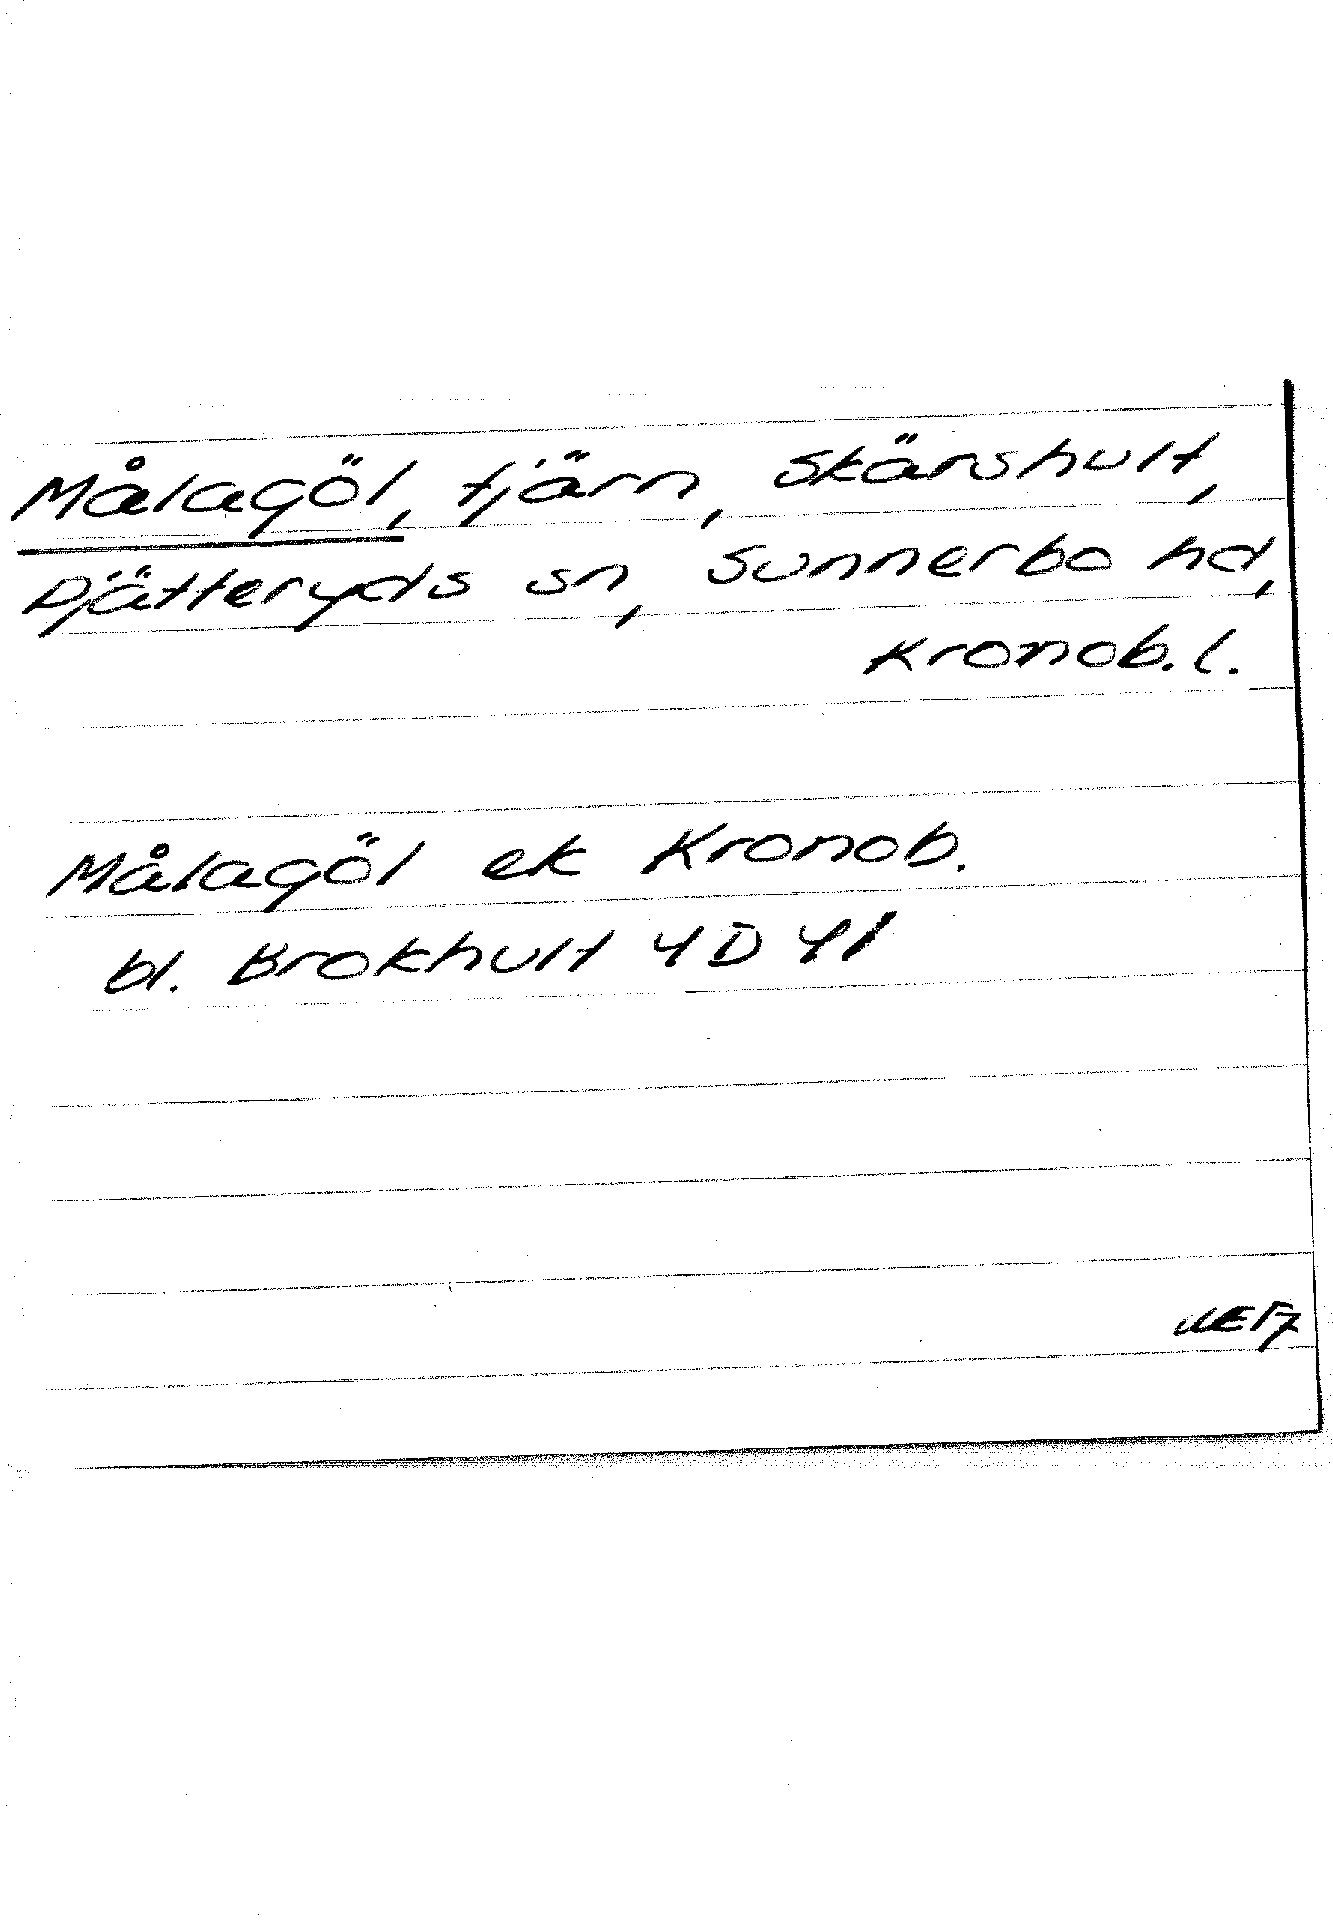 Målagöl, tjärn, Skärshult,
Pjätteryds sn, Sunnerbo hd,
Kronob. l.
Målagöl ek Kronob.
bl. Brokhult 4D 4f